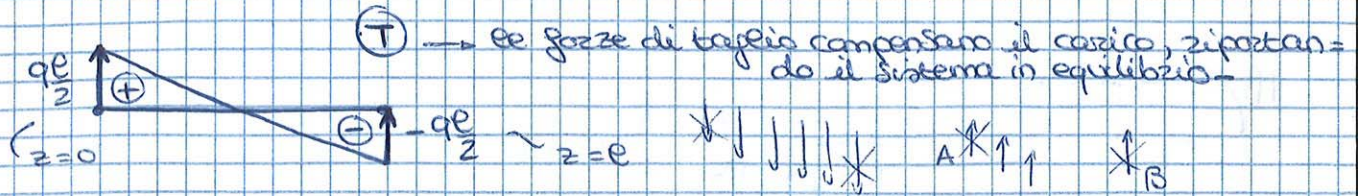 T → le forze di taglio compensano il carico, riportan=
do il sistema in equilibrio-
qℓ/2 + - -qℓ/2
z=0 z=ℓ A B